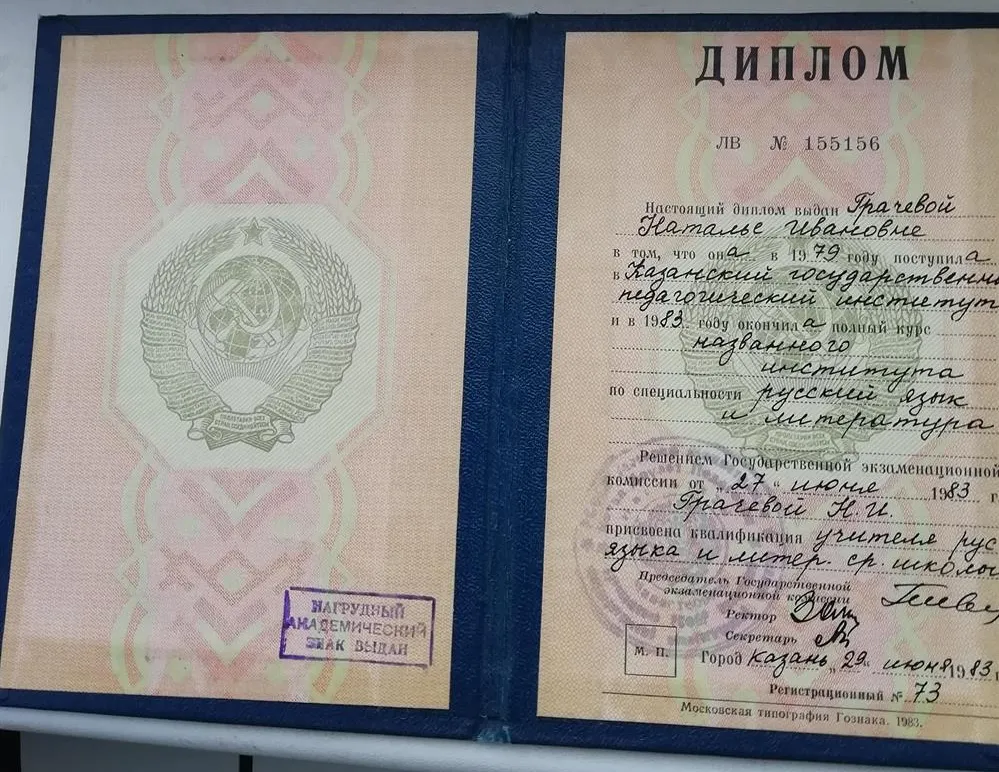 ПРОЛЕТАРИИ ВСЕХ
СТРАН, СОЕДИНЯЙТЕСЬ!
НАГРУДНЫЙ
АКАДЕМИЧЕСКИЙ
ЗНАК ВЫДАН
ДИПЛОМ
ЛВ № 155156
Настоящий диплом выдан Грачевой
Наталье Ивановне
в том, что она в 1979 году поступила
в Казанский государственны
педагогический институт
и в 1983 году окончила полный курс
названного
института
по специальности русский язык
и литература
Решением Государственной экзаменационной
комиссии от „27“ июня 1983 г
Грачевой Н.И.
присвоена квалификация учителя рус
языка и литер. ср. школы
Председатель Государственной
экзаменационной комиссии
Ректор
Секретарь
М. П.
Город Казань „29“ июня 1983 г
Регистрационный № 73
Московская типография Гознака. 1983.